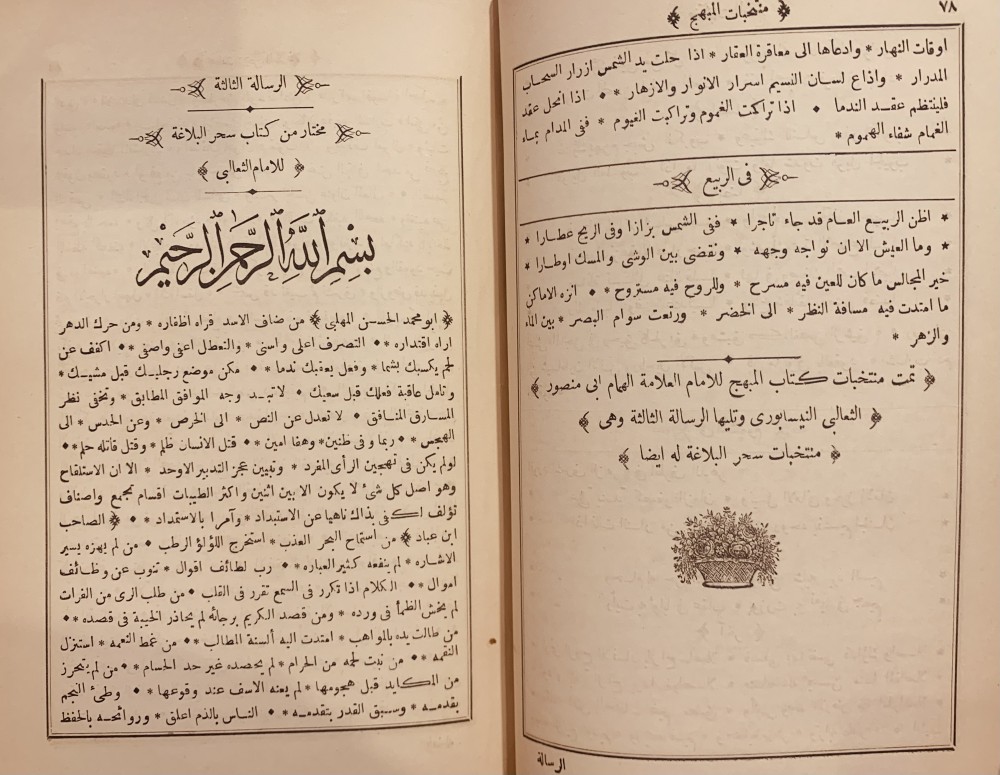 ٧٨
﴿ منتخبات المبهج ﴾
اوقات النهار * وادعاها الى معاقرة العقار * اذا حلت يد الشمس ازرار السحاب
المدرار * واذاع لسان النسيم اسرار الانوار والازهار * • اذا انحل عقد
فلينتظم عقد الندما • اذا تراكمت الغموم وتراكبت الغيوم * ففى المدام بماء
الغمام شفاء الهموم *
فى الربيع
* اظن الربيع العام قد جاء تاجرا * ففى الشمس بزازا وفى الريح عطارا *
* وما العيش الا ان نواجه وجهه * ونقضى بين الوشى والمسك اوطارا *
خير المجالس ما كان للعين فيه مسرح * وللروح فيه مستروح * • انزه الاماكن
ما امتدت فيه مسافة النظر * الى الخضر * ورتعت سوام البصر * بين الماء
والزهر *
﴿ تمت منتخبات كتاب المبهج للامام العلامة الهمام ابى منصور ﴾
﴿ الثعالبى النيسابورى وتليها الرسالة الثالثة وهى ﴾
﴿ منتخبات سحر البلاغة له ايضا ﴾
الرسالة
الرسالة الثالثة
مختار من كتاب سحر البلاغة
﴿ للامام الثعالبى ﴾
بسم الله الرحمن الرحيم
﴿ ابو محمد الحسن المهلبى ﴾ من ضاف الاسد قراه اظفاره * ومن حرك الدهر
اراه اقتداره * • التصرف اعلى واسنى * والتعطل اعنى واصنى * • اكفف عن
لحم يكسبك بشما * وفعل يعقبك ندما * • مكن موضع رجليك قبل مشيك *
وتامل عاقبة فعلك قبل سعيك • لا تبد وجه الموافق المطابق * وتخفى نظر
المسارق المنافق • لا تعدل عن النص * الى الخرص * وعن الحدس * الى
الهجس * • ربما وفى ظنين * وهفا امين * • قتل الانسان ظلم * وقتل قاتله حلم * •
لولم يكن فى تهجين الرأى المفرد * وتبيين عجز التدبير الاوحد * الا ان الاستلقاح
وهو اصل كل شئ لا يكون الا بين اثنين واكثر الطيبات اقسام تجمع واصناف
تؤلف لكفى بذاك ناهيا عن الاستبداد * وآمرا بالاستمداد * • ﴿ الصاحب
ابن عباد ﴾ من استماح البحر العذب * استخرج اللؤلؤ الرطب • من لم يهزه يسير
الاشاره * لم ينفعه كثير العباره * • رب لطائف اقوال * تنوب عن وظائف
اموال * • الكلام اذا تكرر فى السمع تقرر فى القلب • من طلب الرى من الفرات
لم يخش الظمأ فى ورده * ومن قصد الكريم برجائه لم يحاذر الخيبة فى قصده * •
من طالت يده بالمواهب * امتدت اليه ألسنة المطالب * • من غمط النعمه * استنزل
النقمه * • من نبت لحمه من الحرام * لم يحصده غير حد الحسام * • من لم يتحرز
من المكايد قبل هجومها * لم يعنه الاسف عند وقوعها * • وطئ النجم
بقدمه * وسبق القدر بتقدمه * • الناس بالذم اعلق * وروائحه بالحفظ